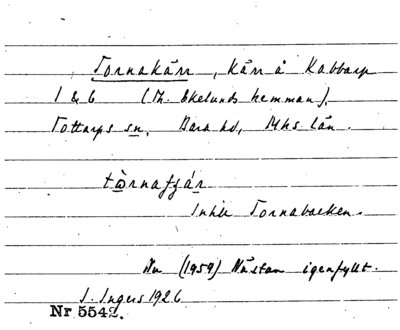 Tornakärr, kärr å Kabbarp
1 & 6 (Th. Ekelunds hemman).
Tottarps sn, Bara hd, Mhs län.
tòrnafʒárr
Intill Tornabacken.
Nu (1959) Nästan igenfyllt.
I. Ingers 1926
Nr 5542.